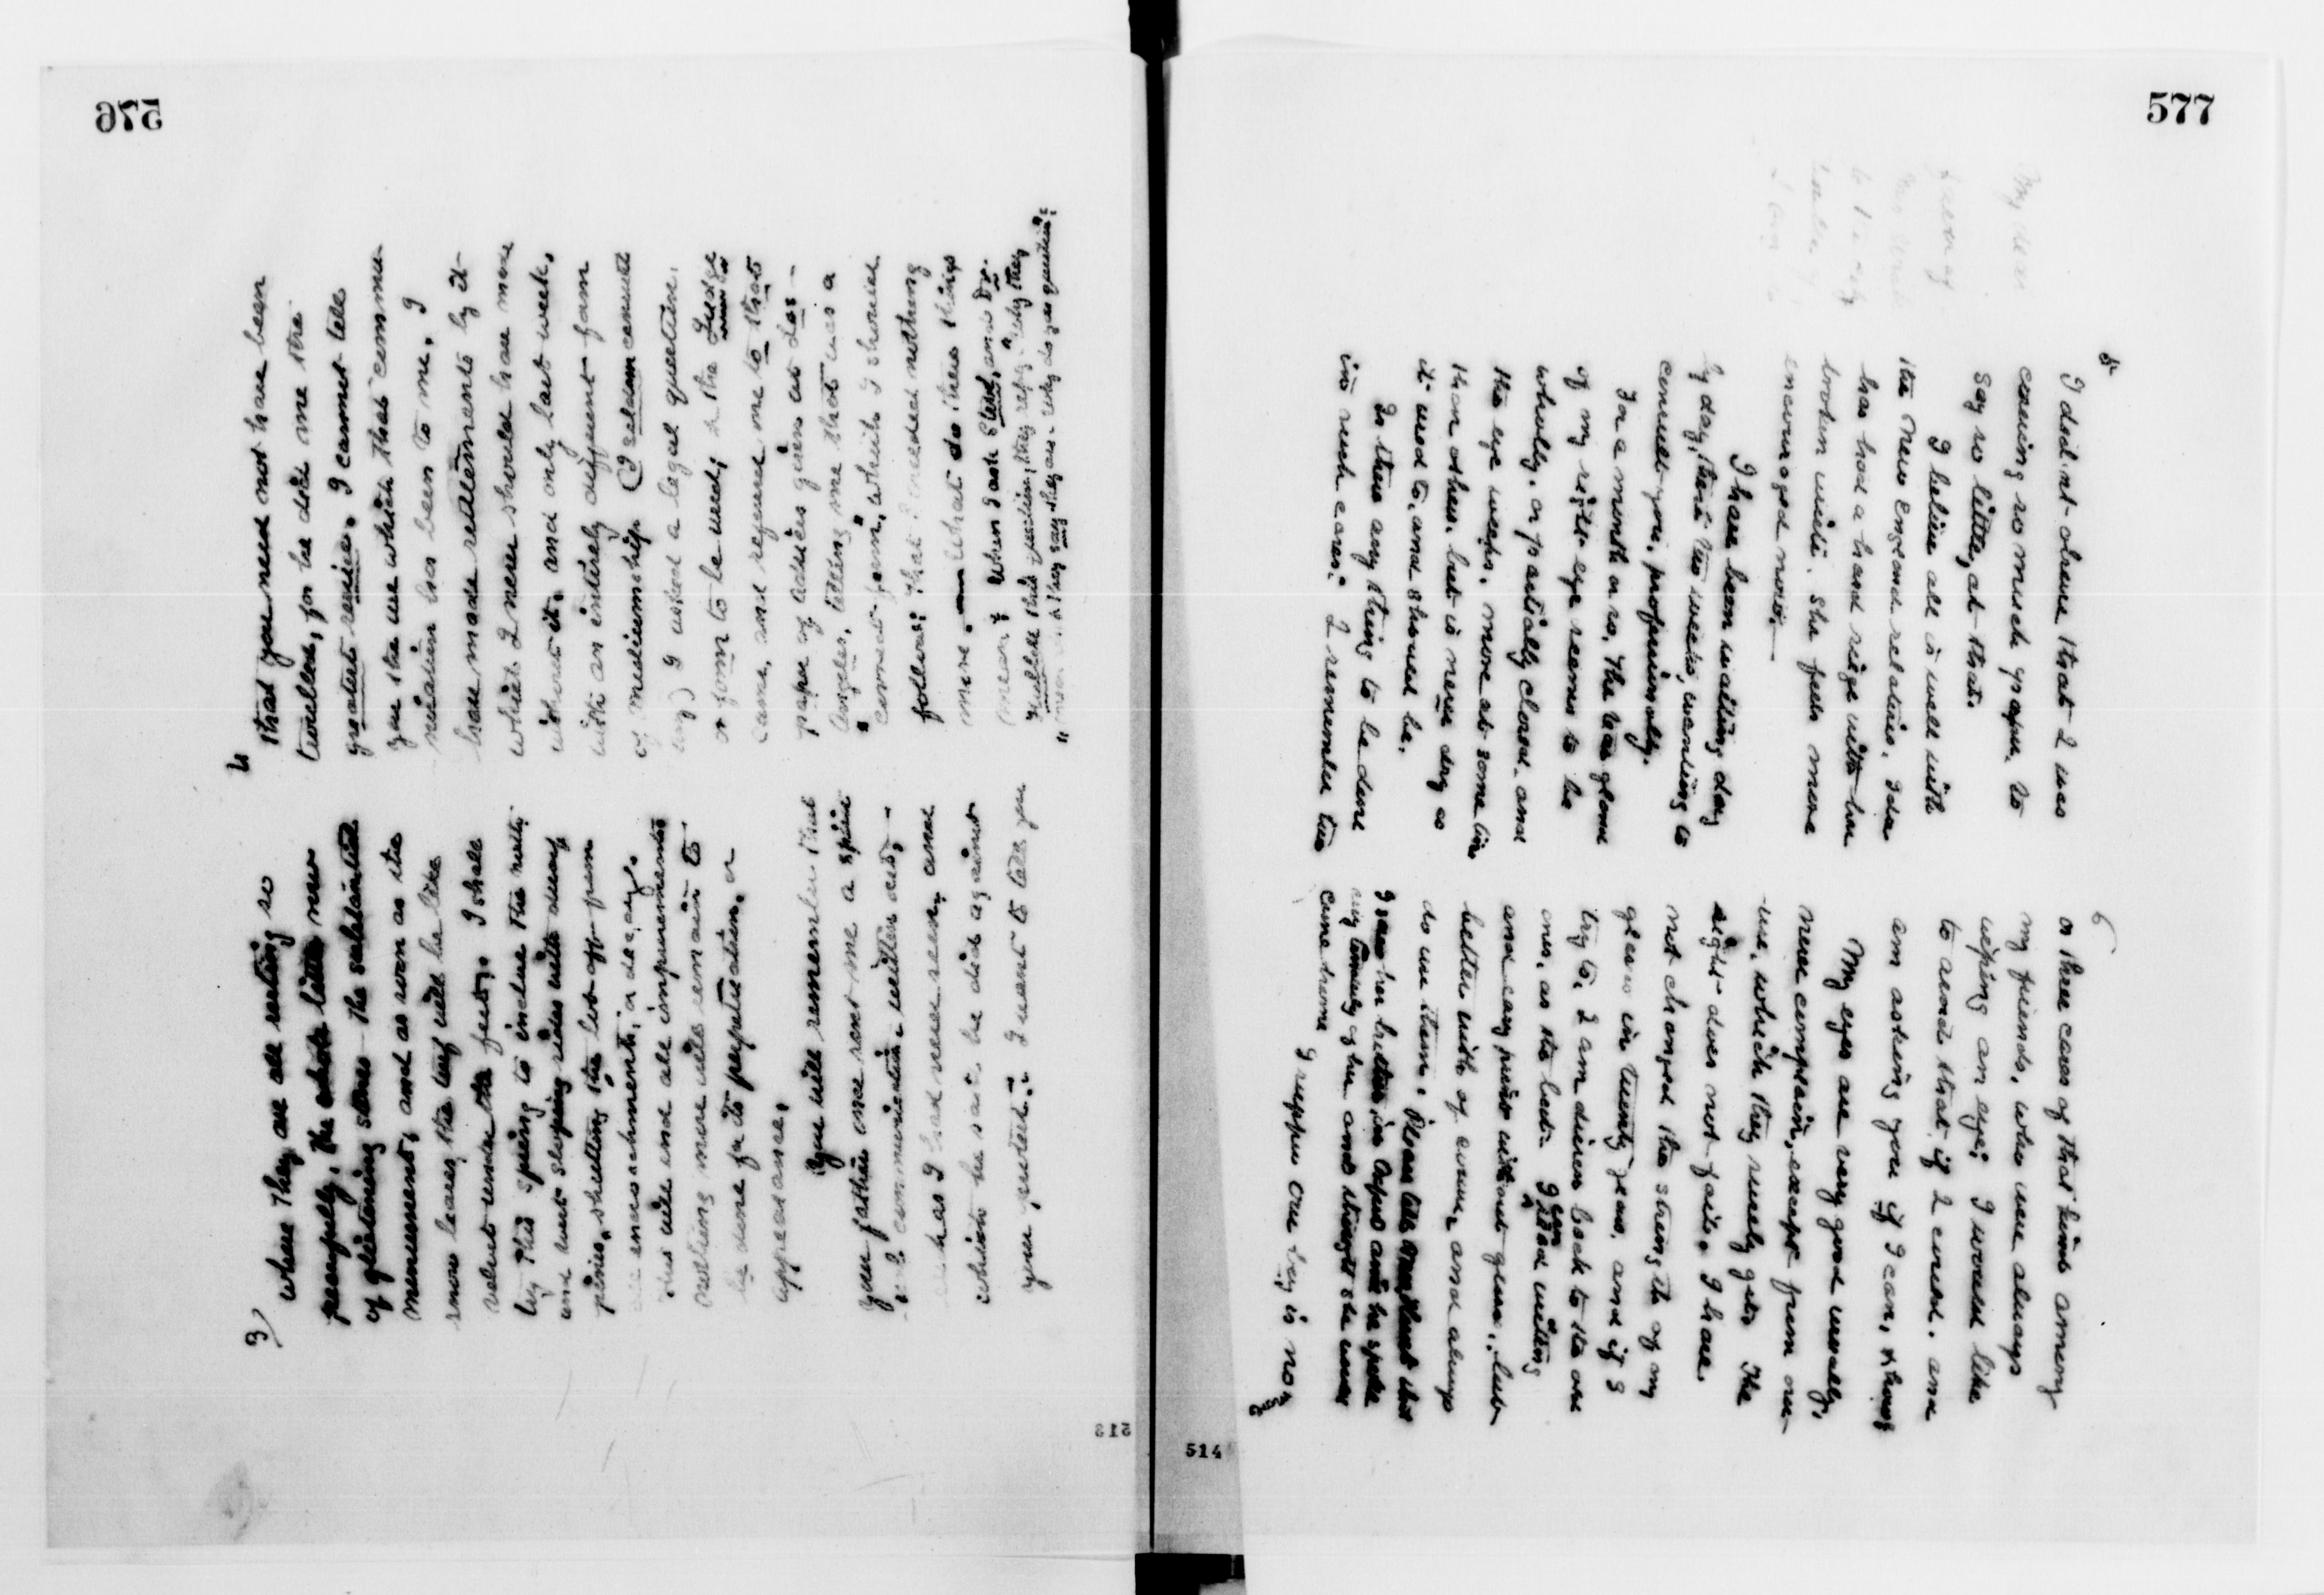 576
3)
where they are all resting so
peacefully, the whole little row
of glistening stones - the substantial
monument, and as soon as the
snow leaves, the turf will be like
velvet under the feet. I shall
try this spring to inclue the nutty
and wet sloping sides with
pinies, shutting this lot off from
all encroachments, or decay.
this will end all improvements
nothing more will remain to
be done for its perpetuation, or
appearance.
You will remember that
your father once sent me a spirit
communication - written out,
I had never seen, and
which he said he did against
your protest: I want to tell you
4
that you need not have been
troubled, for he did me the
greatest service. I cannot tell
you the use which that commu-
nication has been to me. I
have made settlements by it
which I never should have made
without it, and only last week,
with an entirely different form
of mediumship (I seldom consult
any) I asked a legal question,
or form to be used, & the Judge
came, and refered me to that
paper of advices given at Los -
Angeles, telling me that was a
"correct form, which I should
follow: that I needed nothing
more. — What do these things
mean? When I ask Stead, and Dr.
this question, they reply "Why they
"mean what they say they are - why do you question":
513
577
5
I did not observe that I was
causing so much paper to
say so little, at that.
I believe all is well with
the New England relatives. Ida
has had a hard siege with her
broken wrist. She feels more
encouraged now. —
I have been waiting day
by day, these two weeks, wanting to
consult you, professionally.
For a month or so, the tear gland
of my right eye seems to be
wholly, or partially closed and
the eye weeps, more at some time
than others, but is never dry as
it used to, and should be.
Is there any thing to be done
in such cases? I remember two
6
or three cases of that kind among
my friends, who were always
wiping an eye: I would like
to avoid that if I could, and
am asking you if I can, & how?
My eyes are very good usually,
never complain, except from over-
use, which they surely get. The
sight does not fail. I have
not changed the strength of my
glass in twenty years, and if I
try to, I am driven back to the old
ones, as the best. I can read writing
and easy print without glasses, but
better with of course, and always
do use them. Please tell that
I saw her in and he spoke
very tenderly of her and thought she would
come home I suppose our boy is now
514